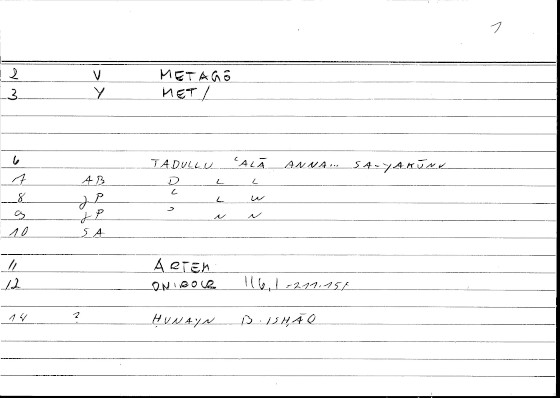 1
2 V METAGŌ
3 Y MET/
6 TADULLU ʿALĀ ANNA... SA-YAKŪNU
7 AB D L L
8 gP ʿ L W
9 gP ʾ N N
10 SA
11 ARTEM
12 ONIROCR 116,1-211.15f
14 ? ḤUNAYN B. ISḤĀQ